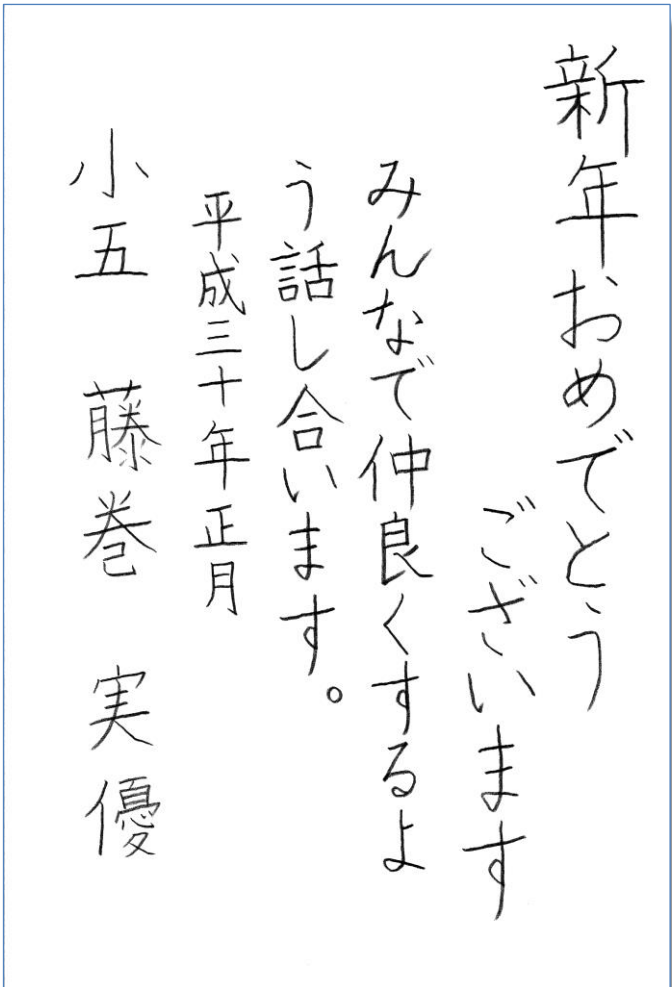 新年おめでとう
ございます
みんなで仲良くするよ
う話し合います。
平成三十年正月
小五 藤巻 実優